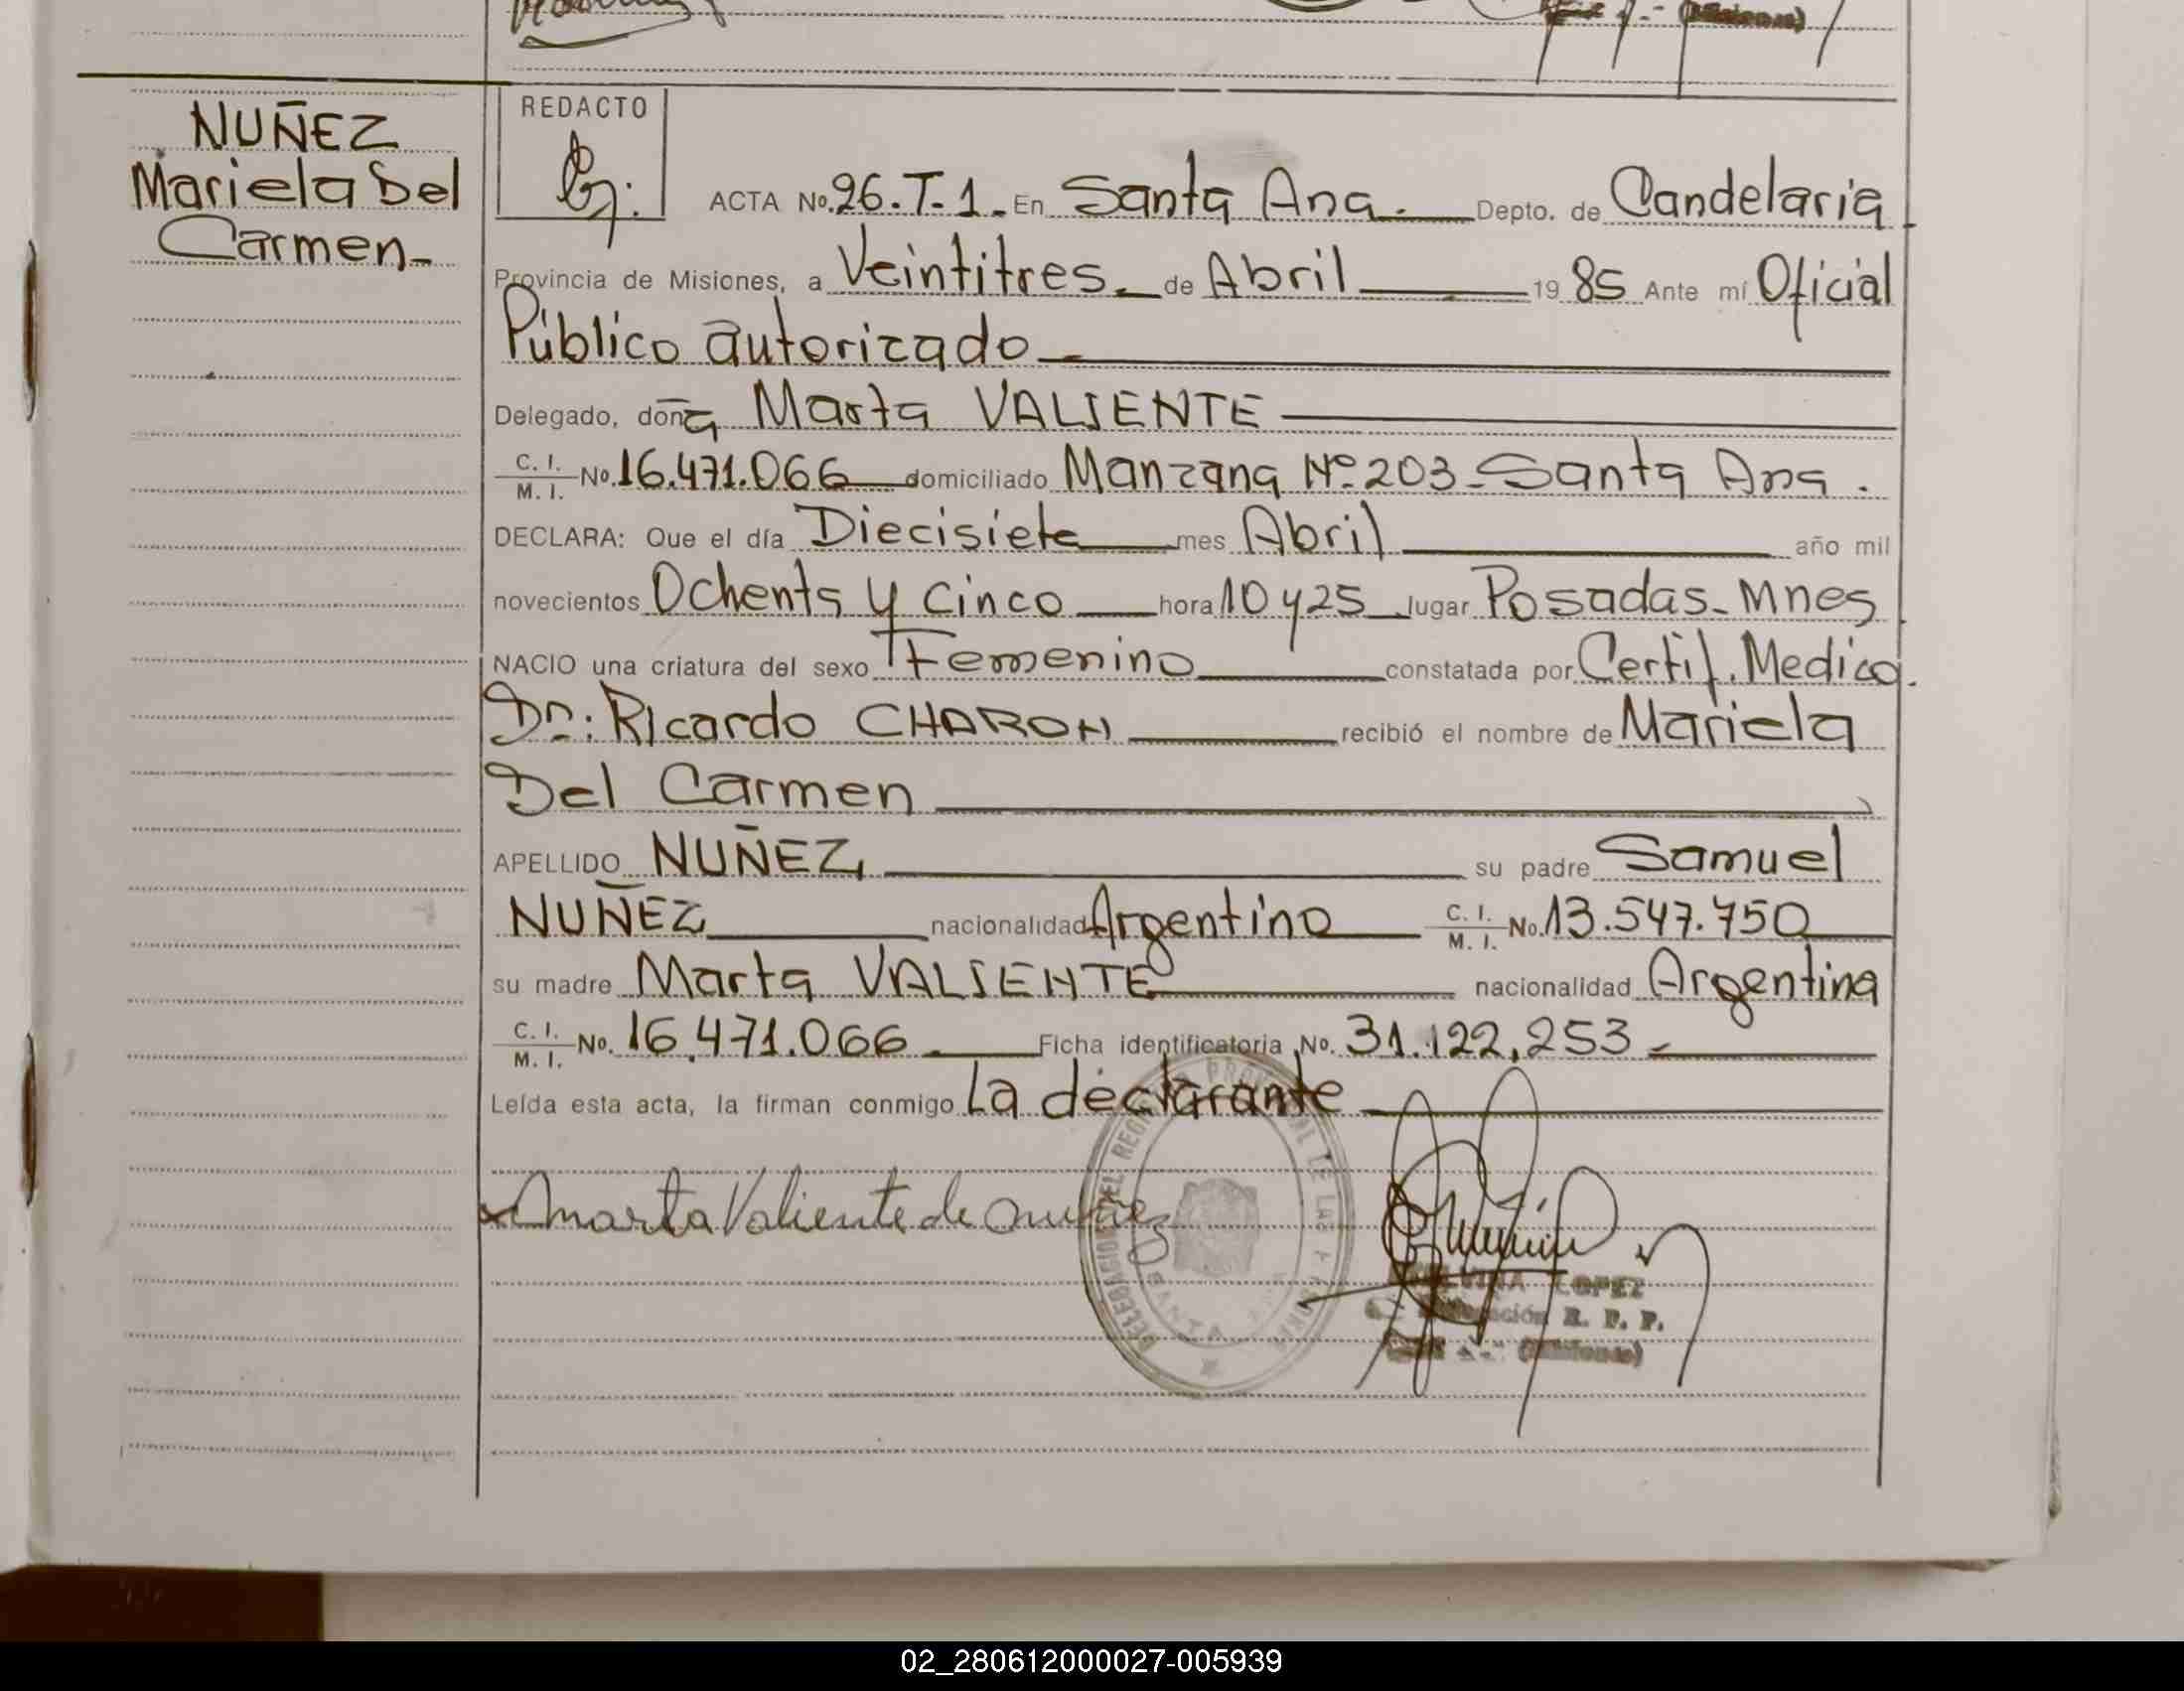 (Misiones)
NUÑEZ
Mariela Del
Carmen-
REDACTO
ACTA No. 26.T-1.- En Santa Ana.- Depto. de Candelaria.
Provincia de Misiones, a Veintitres.- de Abril 1985 Ante mí Oficial
Público autorizado.-
Delegado, doña Marta VALIENTE
C. I. / M. I. No. 16.471.066 domiciliado Manzana Nº 203-Santa Ana.
DECLARA: Que el día Diecisiete mes Abril año mil
novecientos Ochenta y Cinco hora 10 y 25 lugar Posadas-Mnes.
NACIO una criatura del sexo Femenino constatada por Certif. Medico.
Dr: Ricardo CHARON recibió el nombre de Mariela
Del Carmen
APELLIDO NUÑEZ, su padre Samuel
NUÑEZ nacionalidad Argentino C. I. / M. I. No. 13.547.750
su madre Marta VALIENTE nacionalidad Argentina
C. I. / M. I. No. 16.471.066.- Ficha identificatoria No. 31.122.253-
Leída esta acta, la firman conmigo La declarante
Marta Valiente de Nuñez
DELEGACION DEL REGISTRO PROVINCIAL DE LAS PERSONAS
SANTA ANA
LOPEZ
R. P. P.
(Misiones)
02_280612000027-005939